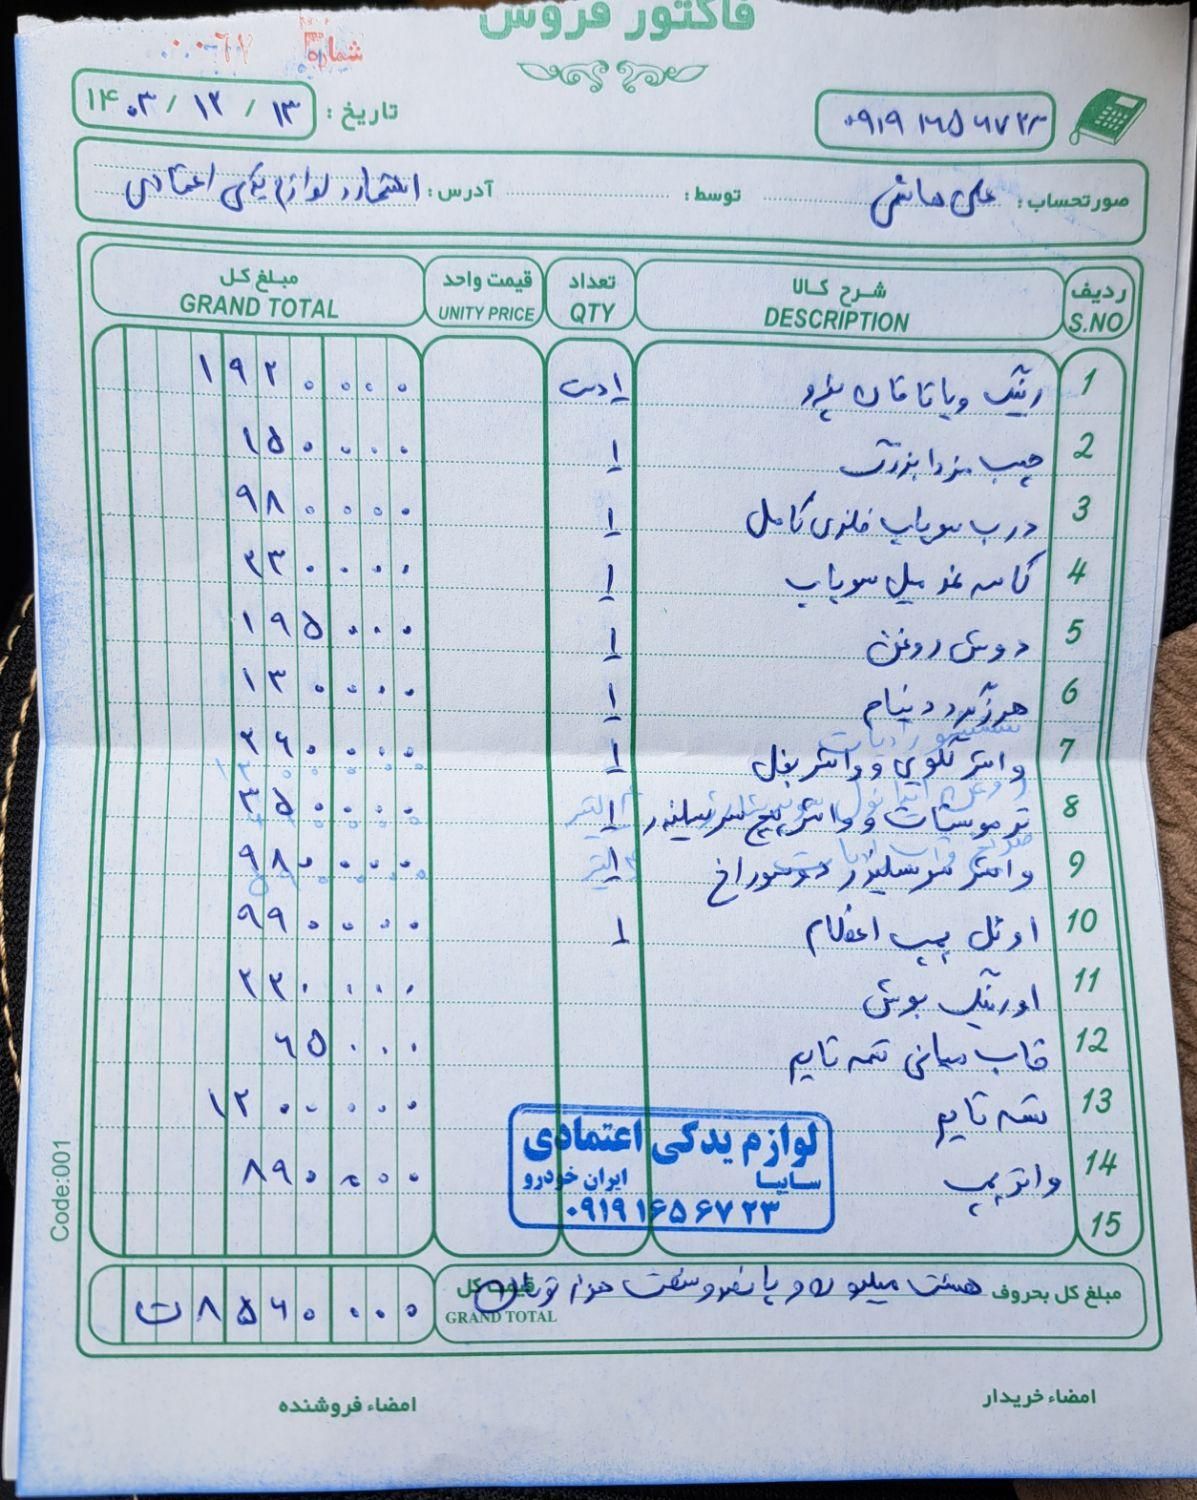 فاکتور فروش
شماره ۰۰۶۷
تاریخ : ۱۴۰۳ / ۱۲ / ۱۳
۰۹۱۹ ۱۶۵ ۶۷ ۲۳
صورتحساب : علی هاشمی توسط : آدرس : لوازم یدکی اعتمادی
ردیف شرح کالا تعداد قیمت واحد مبلغ کل
S.NO DESCRIPTION QTY UNITY PRICE GRAND TOTAL
1 رینگ ویاتاقان پژو ۱دست ۱۹۲۰۰۰۰
2 مزدا بزرگ ۱ ۱۵۰۰۰۰
3 درب سوپاپ فلزی کامل ۱ ۹۸۰۰۰۰
4 کاسه نمد میل سوپاپ ۱
5 دوش روغن ۱ ۱۹۵۰۰۰
6 هرزگرد دینام ۱ ۱۳۰۰۰۰
7 واتر گلویی و واتر بغل ۱ ۳۶۰۰۰۰
8 ترموستات و واتر پیچ سرسیلندر ۱ ۳۵۰۰۰۰
9 واتر سرسیلندر دوسوراخ ۱ ۹۸۰۰۰۰
10 اوئل پمپ اعظام ۱ ۹۹۰۰۰۰
11 اورینگ بوش ۲۲۰۰۰۰
12 قاب میانی تسمه تایم ۶۵۰۰۰
13 تسمه تایم ۱۲۰۰۰۰۰
14 واتر پمپ ۸۹۰۰۰۰
15
لوازم یدکی اعتمادی
سایپا ایران خودرو
۰۹۱۹ ۱۶۵ ۶۷ ۲۳
مبلغ کل بحروف هشت میلیون و پانصدو شصت هزار تومان قیمت کل ۸۵۶۰۰۰۰ ت
GRAND TOTAL
امضاء خریدار امضاء فروشنده
Code:001